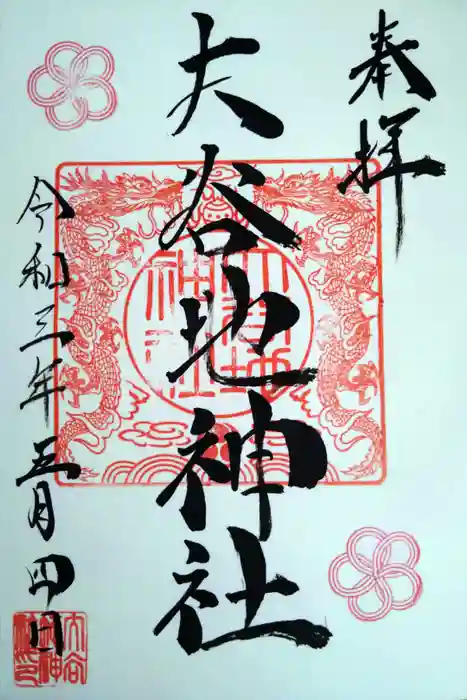 奉拝
大谷地神社
令和三年五月四日
大谷地神社